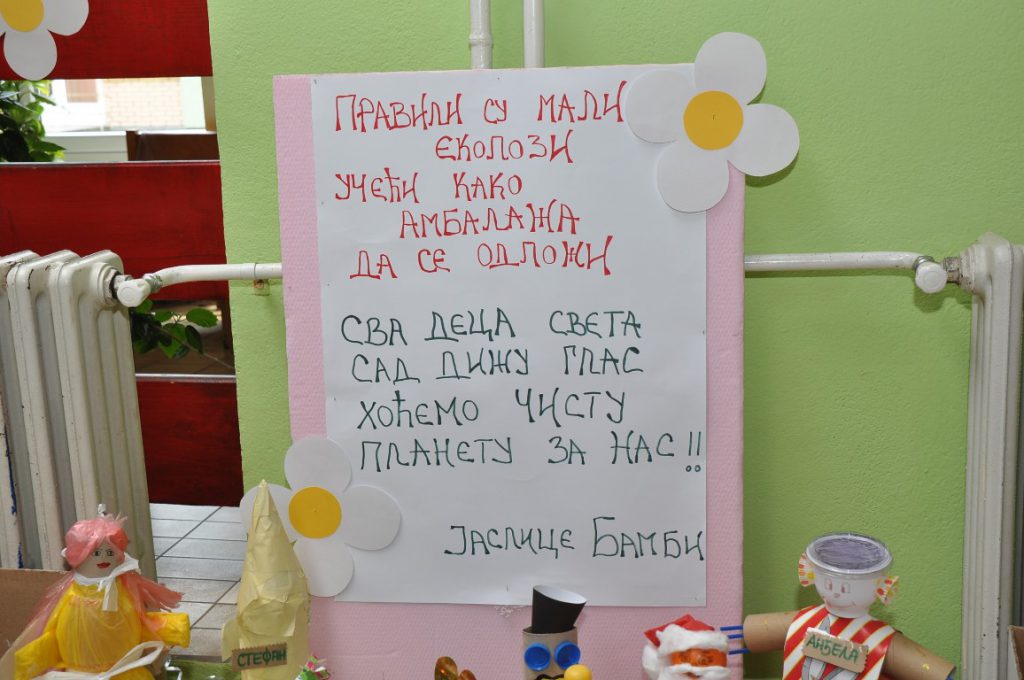 ПРАВИЛИ СУ МАЛИ
ЕКОЛОЗИ
УЧЕЋИ КАКО
АМБАЛАЖА
ДА СЕ ОДЛОЖИ
СВА ДЕЦА СВЕТА
САД ДИЖУ ГЛАС
ХОЋЕМО ЧИСТУ
ПЛАНЕТУ ЗА НАС!!
ЈАСЛИЦЕ БАМБИ
СТЕФАН
АНЂЕЛА